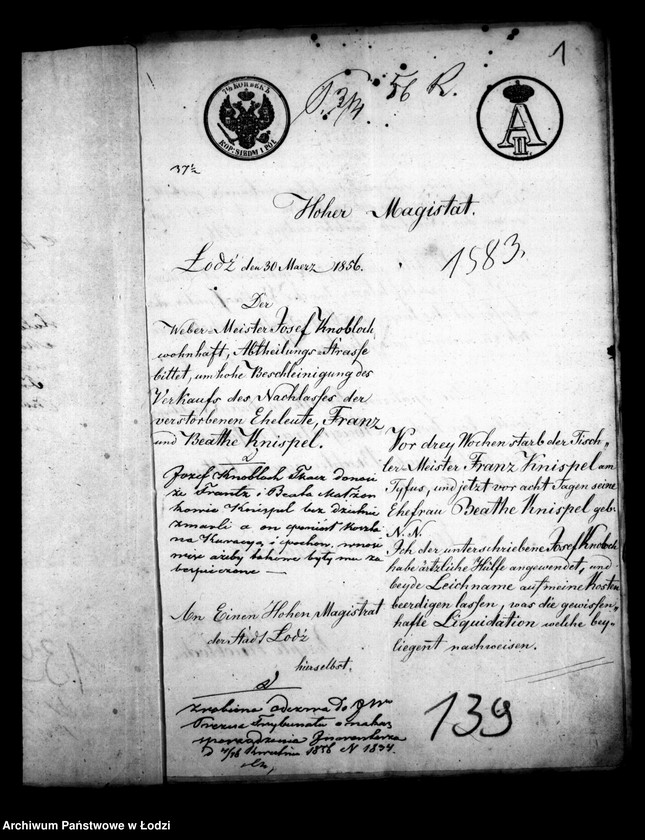 1
7½ КОПѢЕКЪ
KOP: SREBM I PÓŁ
56 R.
A II
37½
Hoher Magistat.
Łodź den 30 Maerz 1856.
1983.
Der
Weber-Meister Josef Knobloch
wohnhaft, Abtheilungs-Strasse
bittet, um hohe Beschleinigung des
Verkaufs des Nachlasses der
verstorbenen Eheleute, Franz
und Beathe Knispel.
Jozef Knobloch Tkacz donosi
że Frantz i Beata Małżon
kowie Knispel bez dzietnie
zmarli a on poniósł koszta
na Kuracyą i pochow, wnosi
ażeby takowe były mu za
bezpieczone —
An Einen Hohen Magistrat
der Stadt Łodź
hierselbst.
Vor drey Wochen starb der Tisch-
ler Meister Franz Knispel am
Tyfus, und jetzt vor acht Tagen seine
Ehefrau Beathe Knispel geb:
N. N.
Ich der unterschriebene Josef Knobloch
habe ärtzliche Hülfe angewendet, und
beyde Leichname auf meine Kosten
beerdigen lassen, was die gewissen-
hafte Liquidation welche bey-
liegent nachweisen.
zrobiona odezwa do JW
Prezesa Trybunału o nakaz
sporządzenia Inwentarza
d Kwietnia 1856 N 1834.
139
Archiwum Państwowe w Łodzi